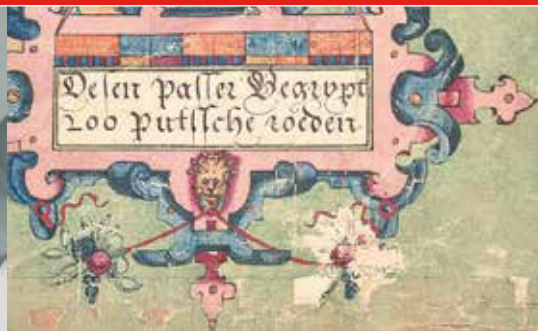 Desen Passer Begrypt
200 Putssche roeden